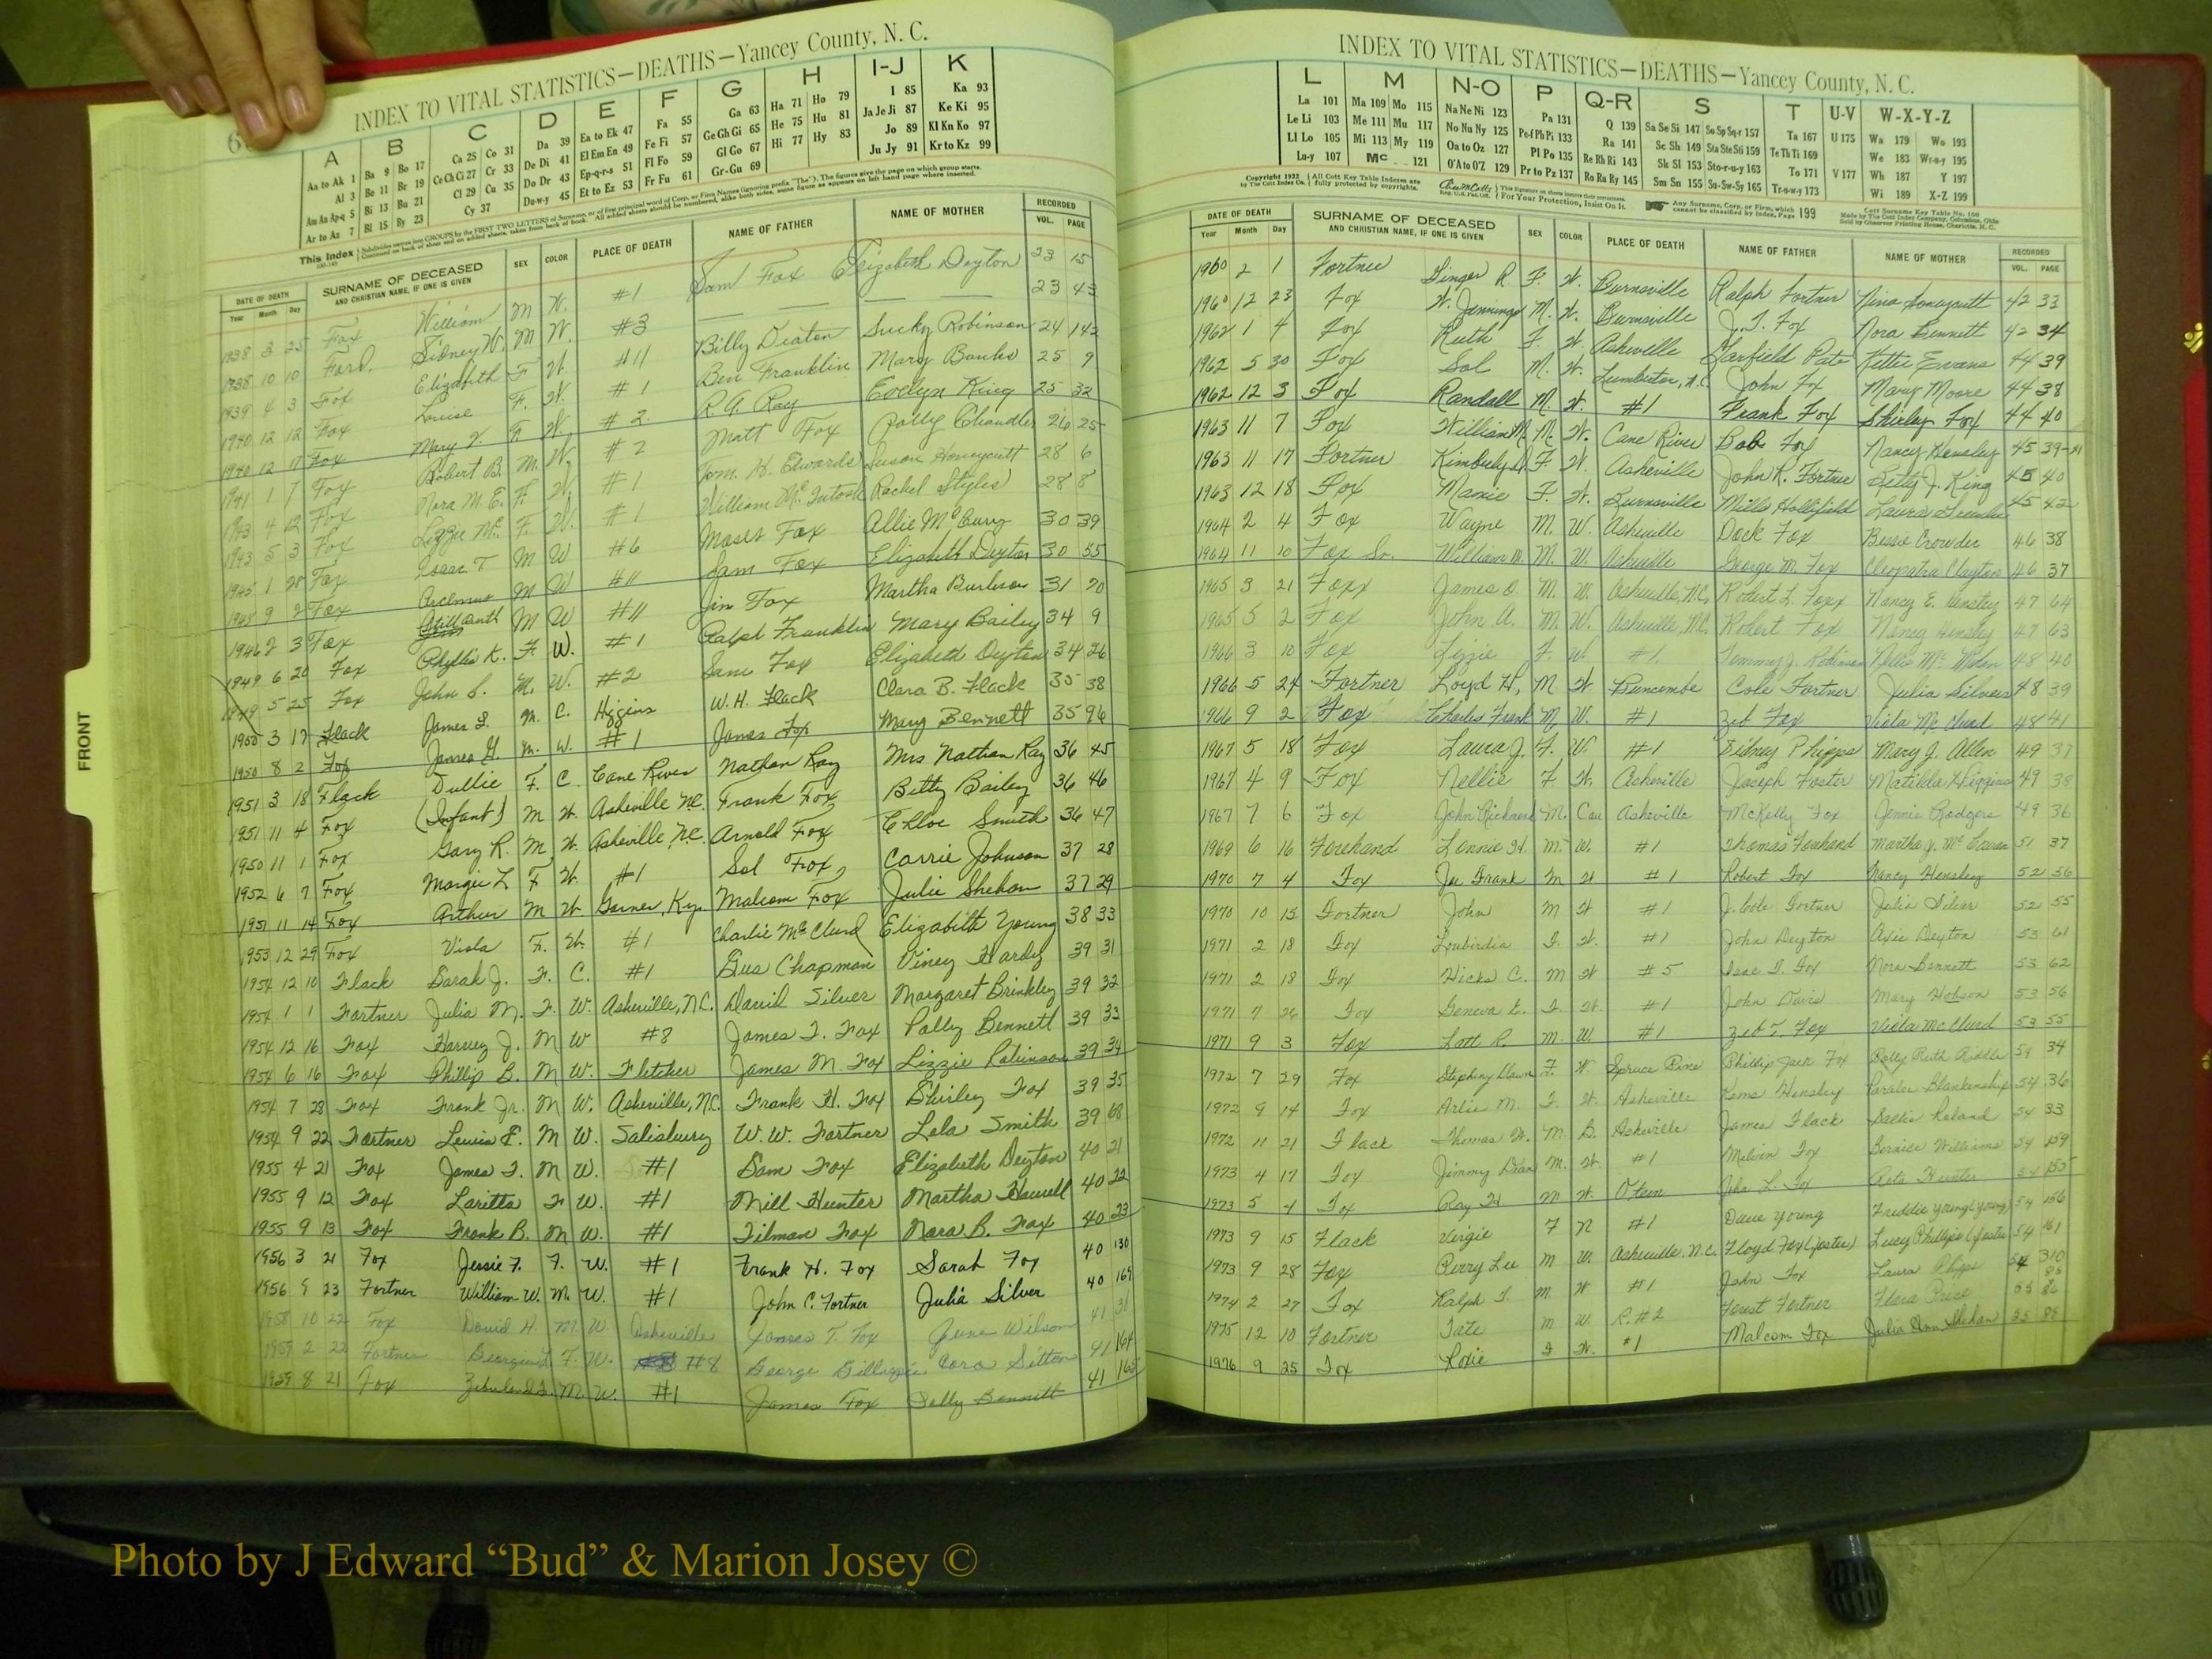 INDEX TO VITAL STATISTICS—DEATHS—Yancey County, N. C.
A B C D E F G H I-J K
Aa to Ak 1 Ba 9 Bo 17 Ca 25 Co 31 Da 39 Ea to Ek 47 Fa 55 Ga 63 Ha 71 Ho 79 I 85 Ka 93
Al 3 Be 11 Br 19 Ce Ch Ci 27 Cr 33 De Di 41 El Em En 49 Fe Fi 57 Ge Gh Gi 65 He 75 Hu 81 Ja Je Ji 87 Ke Ki 95
Am An Ap-q 5 Bi 13 Bu 21 Cl 29 Cu 35 Do Dr 43 Ep-q-r-s 51 Fl Fo 59 Gl Go 67 Hi 77 Hy 83 Jo 89 Kl Kn Ko 97
Ar to Az 7 Bl 15 By 23 Cy 37 Du-w-y 45 Et to Ez 53 Fr Fu 61 Gr-Gu 69 Ju Jy 91 Kr to Kz 99
This Index
DATE OF DEATH SURNAME OF DECEASED SEX COLOR PLACE OF DEATH NAME OF FATHER NAME OF MOTHER RECORDED
Year Month Day AND CHRISTIAN NAME, IF ONE IS GIVEN VOL. PAGE
1938 3 25 Fox William M W. #1 Sam Fox Elizabeth Deyton 23 15
1938 10 10 Ford. Sidney W. M W. #3 23 43
1939 4 3 Fox Elizabeth F W. #11 Billy Deaton Sucky Robinson 24 142
1940 12 12 Fox Louise F. W. #1 Ben Franklin Mary Banks 25 9
1940 12 17 Fox Mary V. F W #2 R. A. Ray Evelyn King 25 32
1941 1 7 Fox Robert B. M. W. #2 Matt Fox Polly Chandler 26 25
1943 4 12 Fox Nora M. E. F. W. #1 Tom. H. Edwards Susan Honeycutt 28 6
1943 5 3 Fox Lizzie Mc. F. W. #1 William McIntosh Rachel Styles 28 8
1945 1 28 Fox Isaac T M W #6 Moses Fox Allie McCury 30 39
1945 9 2 Fox M W #11 Sam Fox Elizabeth Deyton 30 55
1946 2 3 Fox M W #11 Jim Fox Martha Burleson 31 70
1949 6 20 Fox Phyllis K. F. W. #1 Ralph Franklin Mary Bailey 34 9
1949 5 25 Fox John S. M. W. #2 Sam Fox Elizabeth Deyton 34 26
1950 3 17 Flack James L. M. C. Higgins W. H. Flack Clara B. Flack 35 38
1950 8 2 Fox James H. M. W. #1 James Fox Mary Bennett 35 96
1951 3 18 Flack Dullie F. C. Cane River Nathan Ray Mrs Nathan Ray 36 45
1951 11 4 Fox (Infant) M W. Asheville N.C. Frank Fox Betty Bailey 36 46
1950 11 1 Fox Gary R. M W. Asheville, N.C. Arnold Fox Chloe Smith 36 47
1952 6 7 Fox Margie L F W. #1 Sol Fox Carrie Johnson 37 28
1951 11 14 Fox Arthur M W. Garner, Ky. Malcom Fox Julie Shehan 37 29
1953 12 29 Fox Viola F. W. #1 Charlie McClurd Elizabeth Young 38 33
1954 12 10 Flack Sarah J. F. C. #1 Gus Chapman Viney Hardy 39 31
1954 1 1 Fortner Julia M. F. W. Asheville, N.C. David Silver Margaret Brinkley 39 32
1954 12 16 Fox Harvey J. M W #8 James T. Fox Polly Bennett 39 33
1954 6 16 Fox Phillip B. M W. Fletcher James M. Fox Lizzie Robinson 39 34
1954 7 28 Fox Frank Jr. M W. Asheville, N.C. Frank H. Fox Shirley Fox 39 35
1954 9 22 Fortner Lewis E. M W. Salisbury W. W. Fortner Lola Smith 39 68
1955 4 21 Fox James T. M W. #1 Sam Fox Elizabeth Deyton 40 21
1955 9 12 Fox Laritta F W. #1 Mill Hunter Martha Howell 40 22
1955 9 13 Fox Frank B. M W. #1 Tilman Fox Nora B. Fox 40 23
1956 3 21 Fox Jessie F. F. W. #1 Frank H. Fox Sarah Fox 40 130
1956 5 23 Fortner William W. M. W. #1 John C. Fortner Julia Silver 40 169
1958 10 22 Fox David H. M. W. Asheville James T. Fox June Wilson 41 31
1959 2 22 Fortner Georgia L F. W. #8 George Gillispie Cora Sitton 41 164
1959 8 21 Fox M W. #1 James Fox Polly Bennett 41 165
FRONT
INDEX TO VITAL STATISTICS—DEATHS—Yancey County, N. C.
L M N-O P Q-R S T U-V W-X-Y-Z
La 101 Ma 109 Mo 115 Na Ne Ni 123 Pa 131 Q 139 Sa Se Si 147 So Sp Sq-r 157 Ta 167 U 175 Wa 179 Wo 193
Le Li 103 Me 111 Mu 117 No Nu Ny 125 Pe-f Ph Pi 133 Ra 141 Sc Sh 149 Sta Ste Sti 159 Te Th Ti 169 We 183 Wr-u-y 195
Ll Lo 105 Mi 113 My 119 Oa to Oz 127 Pl Po 135 Re Rh Ri 143 Sk Sl 153 Sto-r-u-y 163 To 171 V 177 Wh 187 Y 197
Lu-y 107 Mc 121 O'A to O'Z 129 Pr to Pz 137 Ro Ra Ry 145 Sm Sn 155 Su-Sw-Sy 165 Tr-u-w-y 173 Wi 189 X-Z 199
Copyright 1932 by The Cott Index Co. All Cott Key Table Indexes are fully protected by copyrights. For Your Protection, Insist On It. Any Surname, Corp. or Firm, which cannot be classified by Index, Page 199
DATE OF DEATH SURNAME OF DECEASED SEX COLOR PLACE OF DEATH NAME OF FATHER NAME OF MOTHER RECORDED
Year Month Day AND CHRISTIAN NAME, IF ONE IS GIVEN VOL. PAGE
1960 2 1 Fortner Ginger R. F. W. Burnsville Ralph Fortner Nina Honeycutt 42 33
1960 12 23 Fox W. Jennings M. W. Burnsville J. T. Fox Nora Bennett 42 34
1962 1 4 Fox Ruth F. W. Asheville Garfield Pate Kettie Evans 44 39
1962 5 30 Fox Sol M. W. Lumberton, N.C. John Fox Mary Moore 44 38
1962 12 3 Fox Randall M. W. #1 Frank Fox Shirley Fox 44 40
1963 11 7 Fox William M. M. W. Cane River Bob Fox Nancy Hensley 45 39
1963 11 17 Fortner Kimberly F. W. Asheville John R. Fortner Betty J. King 45 40
1963 12 18 Fox Mamie F. W. Burnsville Mills Hollifield Laura 45 42
1964 2 4 Fox Wayne M. W. Asheville Dock Fox Bessie Crowder 46 38
1964 11 10 Fox Sr. William M. M. W. Asheville George M. Fox Cleopatra Clayton 46 37
1965 3 21 Foxx James O. M. W. Asheville, N.C. Robert L. Foxx Nancy E. Hensley 47 64
1965 5 2 Fox John A. M. W. Asheville, N.C. Robert Fox Nancy Hensley 47 63
1966 3 10 Fox Lizzie F. W. #1 Tommy J. Robinson 48 40
1966 5 24 Fortner Loyd H, M W Buncombe Cole Fortner Julia Silvers 48 39
1966 9 2 Fox Charles Frank M. W. #1 Zeb Fox Viola McClurd 48 41
1967 5 18 Fox Laura J. F. W. #1 Sidney Phipps Mary J. Allen 49 37
1967 4 9 Fox Nellie F. W. Asheville Joseph Foster Matilda Higgins 49 38
1967 7 6 Fox John Richard M. Cau Asheville McKelly Fox Jennie Rodgers 49 36
1969 6 16 Forehand Lonnie H. M. W. #1 Thomas Forehand Martha J. 51 37
1970 7 4 Fox Joe Frank M W #1 Robert Fox Nancy Hensley 52 56
1970 10 15 Fortner John M W #1 J. Cole Fortner Julia Silver 52 55
1971 2 18 Fox Loubirdia F. W. #1 John Deyton Axie Deyton 53 61
1971 2 18 Fox Hicks C. M W #5 Isac T. Fox Nora Bennett 53 62
1971 7 26 Fox Geneva E. F. W. #1 John Davis Mary Hobson 53 56
1971 9 3 Fox Lott R. M. W. #1 Zeb T. Fox Viola McClurd 53 55
1972 7 29 Fox Stephiny Dawn F. W. Spruce Pine Phillip Jack Fox Polly Ruth Riddle 54 34
1972 9 14 Fox Arlie M. F. W. Asheville Kems Hensley Blankenship 54 36
1972 11 21 Flack Thomas W. M. B. Asheville James Flack Sallie Roland 54 33
1973 4 17 Fox Jimmy Dean M. W. #1 Melvin Fox Bernice Williams 54 159
1973 5 4 Fox Ray H M W. Oteen John L. Fox Hunter 54 155
1973 9 15 Flack Virgie F N #1 Dave Young Freddie Young (Young) 54 156
1973 9 28 Fox Perry Lee M W. Asheville, N.C. Floyd Fox (foster) Lucy Phillips (foster) 54 161
1974 2 27 Fox Ralph T. M W #1 John Fox Laura Phipps 54 310
1975 12 10 Fortner Tate M W. R. #2 Forest Fortner Flora Price 55 86
1976 9 25 Fox Roxie F W. #1 Malcom Fox Julia Ann Shehan 55 85
Photo by J Edward “Bud” & Marion Josey ©